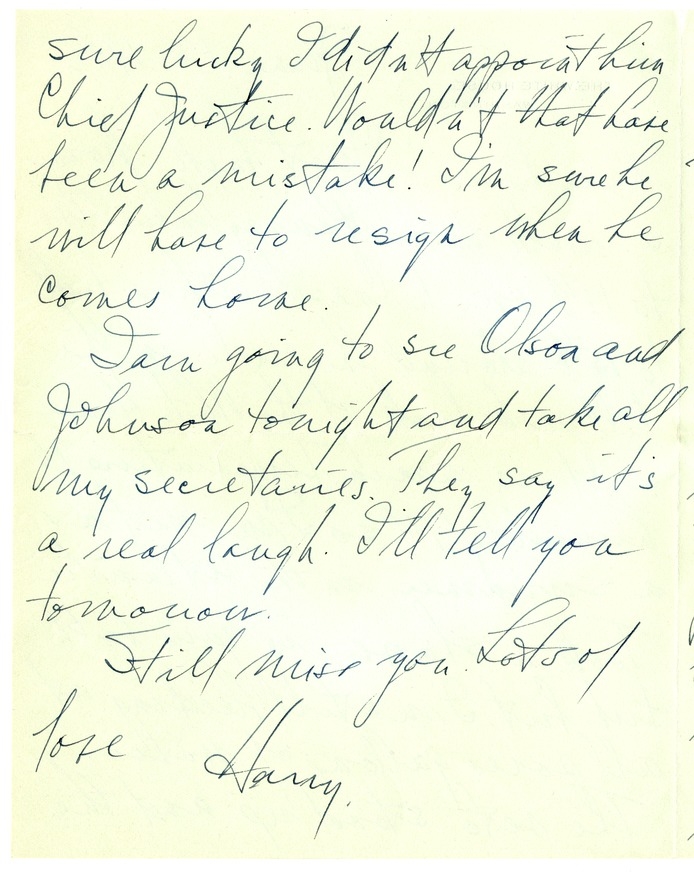 sure lucky I didn't appoint him
Chief Justice. Wouldn't that have
been a mistake! I'm sure he
will have to resign when he
comes home.
I am going to see Olson and
Johnson tonight and take all
my secretaries. They say it's
a real laugh. I'll tell you
tomorrow.
Still miss you. Lots of
love Harry.